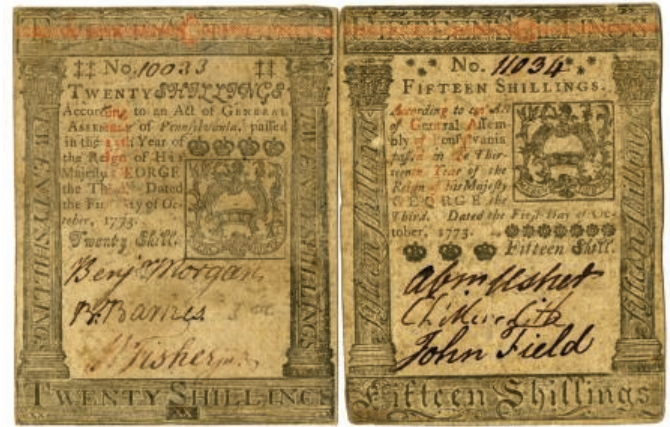 TWENTY SHILLINGS
No. 10033
TWENTY SHILLINGS
According to an Act of GENERAL
ASSEMBLY of Pennsylvania, passed
in the Year of
the Reign of His
Majesty GEORGE
the Dated
the of Oc-
tober, 1773.
Twenty Shill.
Benj. Morgan
Barnes
Fisher junr
TWENTY SHILLINGS
TWENTY SHILLINGS
TWENTY SHILLINGS
No. 11034
FIFTEEN SHILLINGS.
According to an Act
of General Assem-
bly of Pennsylvania
passed in the Thir-
teenth Year of the
Reign of his Majesty
GEORGE the
Third. Dated the First Day of Oc-
tober, 1773.
Fifteen Shill.
John Field
Fifteen Shillings
Fifteen Shillings
Fifteen Shillings